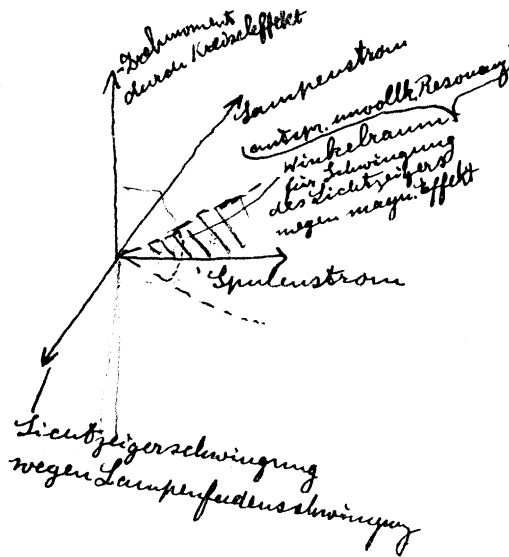 Drehmoment
durch Kreiseleffekt
Lampenstrom
entspr. unvollk. Resonanz
Winkelraum
für Schwingung
des Lichtzeigers
wegen magn. Effekt
Spulenstrom
Lichtzeigerschwingung
wegen Lampenfadenschwingung